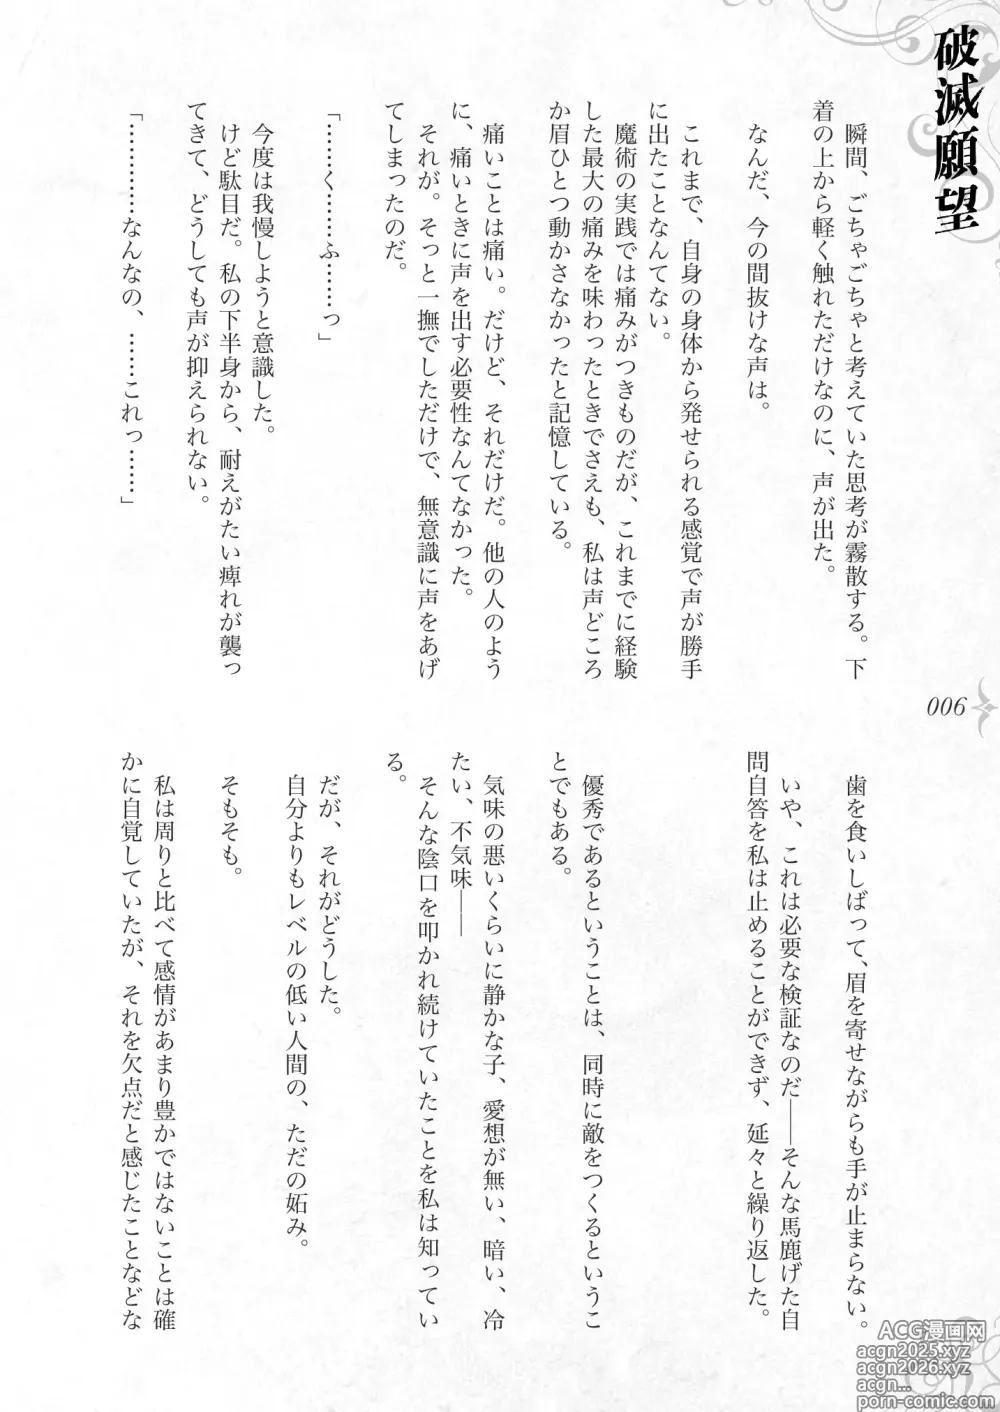 破滅願望
瞬間、ごちゃごちゃと考えていた思考が霧散する。下
着の上から軽く触れただけなのに、声が出た。
なんだ、今の間抜けな声は。
これまで、自身の身体から発せられる感覚で声が勝手
に出たことなんてない。
魔術の実践では痛みがつきものだが、これまでに経験
した最大の痛みを味わったときでさえも、私は声どころ
か眉ひとつ動かさなかったと記憶している。
痛いことは痛い。だけど、それだけだ。他の人のよう
に、痛いときに声を出す必要性なんてなかった。
それが。そっと一撫でしただけで、無意識に声をあげ
てしまったのだ。
「……く……ふ……っ」
今度は我慢しようと意識した。
けど駄目だ。私の下半身から、耐えがたい痺れが襲っ
てきて、どうしても声が抑えられない。
「…………なんなの、……これっ……」
006
歯を食いしばって、眉を寄せながらも手が止まらない。
いや、これは必要な検証なのだ――そんな馬鹿げた自
問自答を私は止めることができず、延々と繰り返した。
優秀であるということは、同時に敵をつくるというこ
とでもある。
気味の悪いくらいに静かな子、愛想が無い、暗い、冷
たい、不気味――
そんな陰口を叩かれ続けていたことを私は知ってい
る。
だが、それがどうした。
自分よりもレベルの低い人間の、ただの妬み。
そもそも。
私は周りと比べて感情があまり豊かではないことは確
かに自覚していたが、それを欠点だと感じたことなどな
ACG漫画网
acgn2025.xyz
acgn2026.xyz
acgn...
porn-comic.com